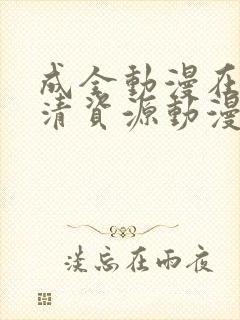 成全動漫在
清資源動漫
淡忘在雨夜